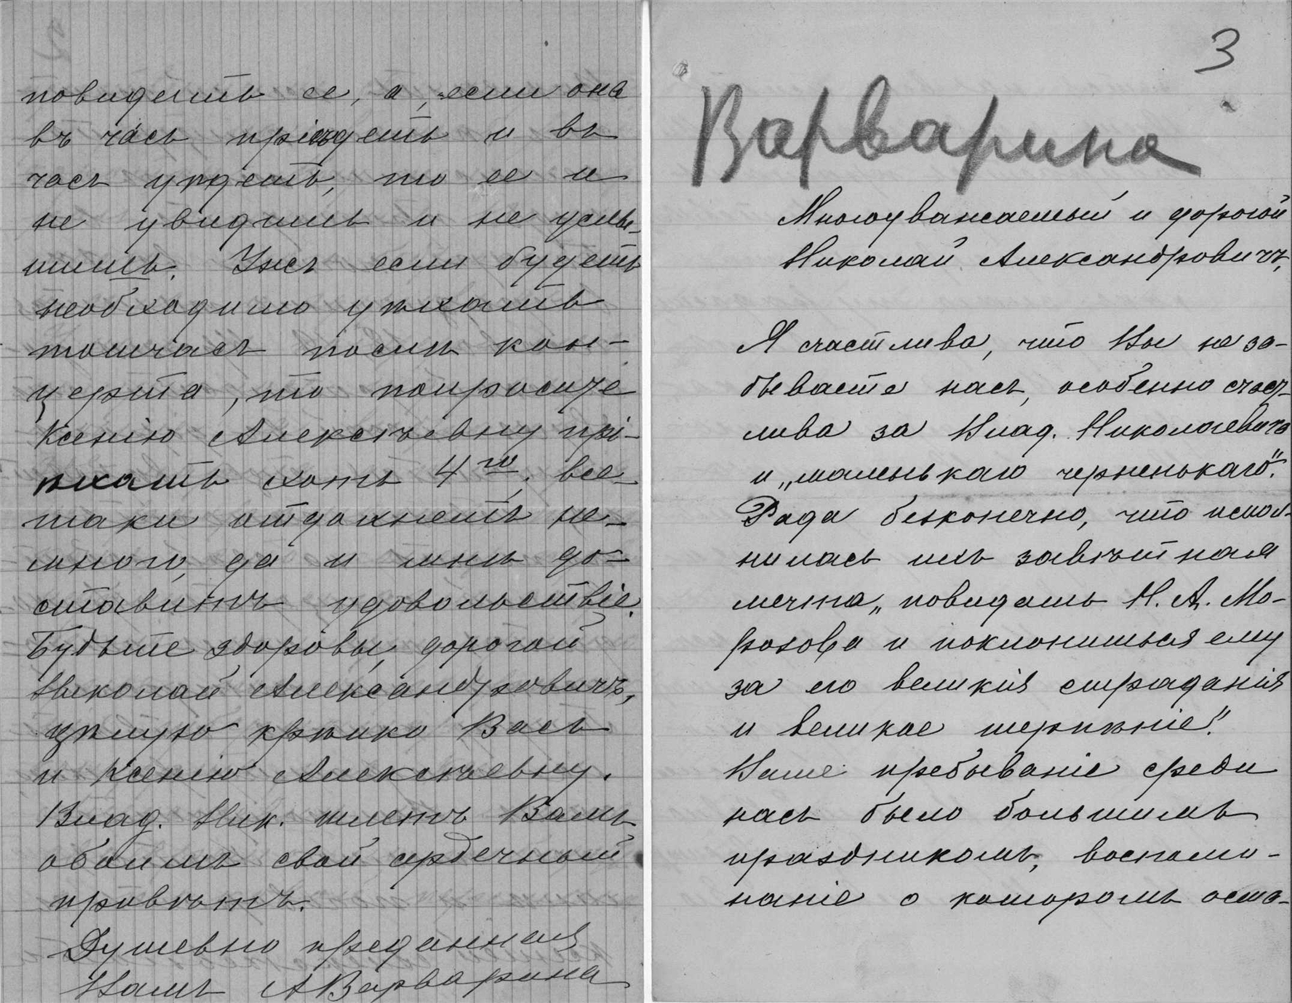 повидать ее, а, если она
въ часъ пріѣдетъ и въ
часъ уѣдетъ, то ее и
не увидишь и не услы-
шишь. Ужъ если будетъ
необходимо уѣхать
тотчасъ послѣ кон-
церта, то попросите
Ксенію Алексѣевну прі-
ѣхать хоть 4го, все-
таки отдохнетъ не-
много, да и мнѣ до-
ставитъ удовольствіе.
Будьте здоровы, дорогой
Николай Александровичъ,
цѣлую крѣпко Васъ
и Ксенію Алексѣевну.
Влад. Ник. шлетъ Вамъ
обоимъ свой сердечный
привѣтъ.
Душевно преданная
Вамъ А Варварина
3
Варварина
Многоуважаемый и дорогой
Николай Александровичъ,
Я счастлива, что Вы не за-
бываете насъ, особенно счаст-
лива за Влад. Николаевича
и „маленькаго черненькаго".
Рада безконечно, что испол-
нилась ихъ завѣтная
мечта „повидать Н. А. Мо-
розова и поклониться ему
за его великія страданія
и великое терпѣніе".
Ваше пребываніе среди
насъ было большимъ
праздникомъ, воспоми-
наніе о которомъ оста-